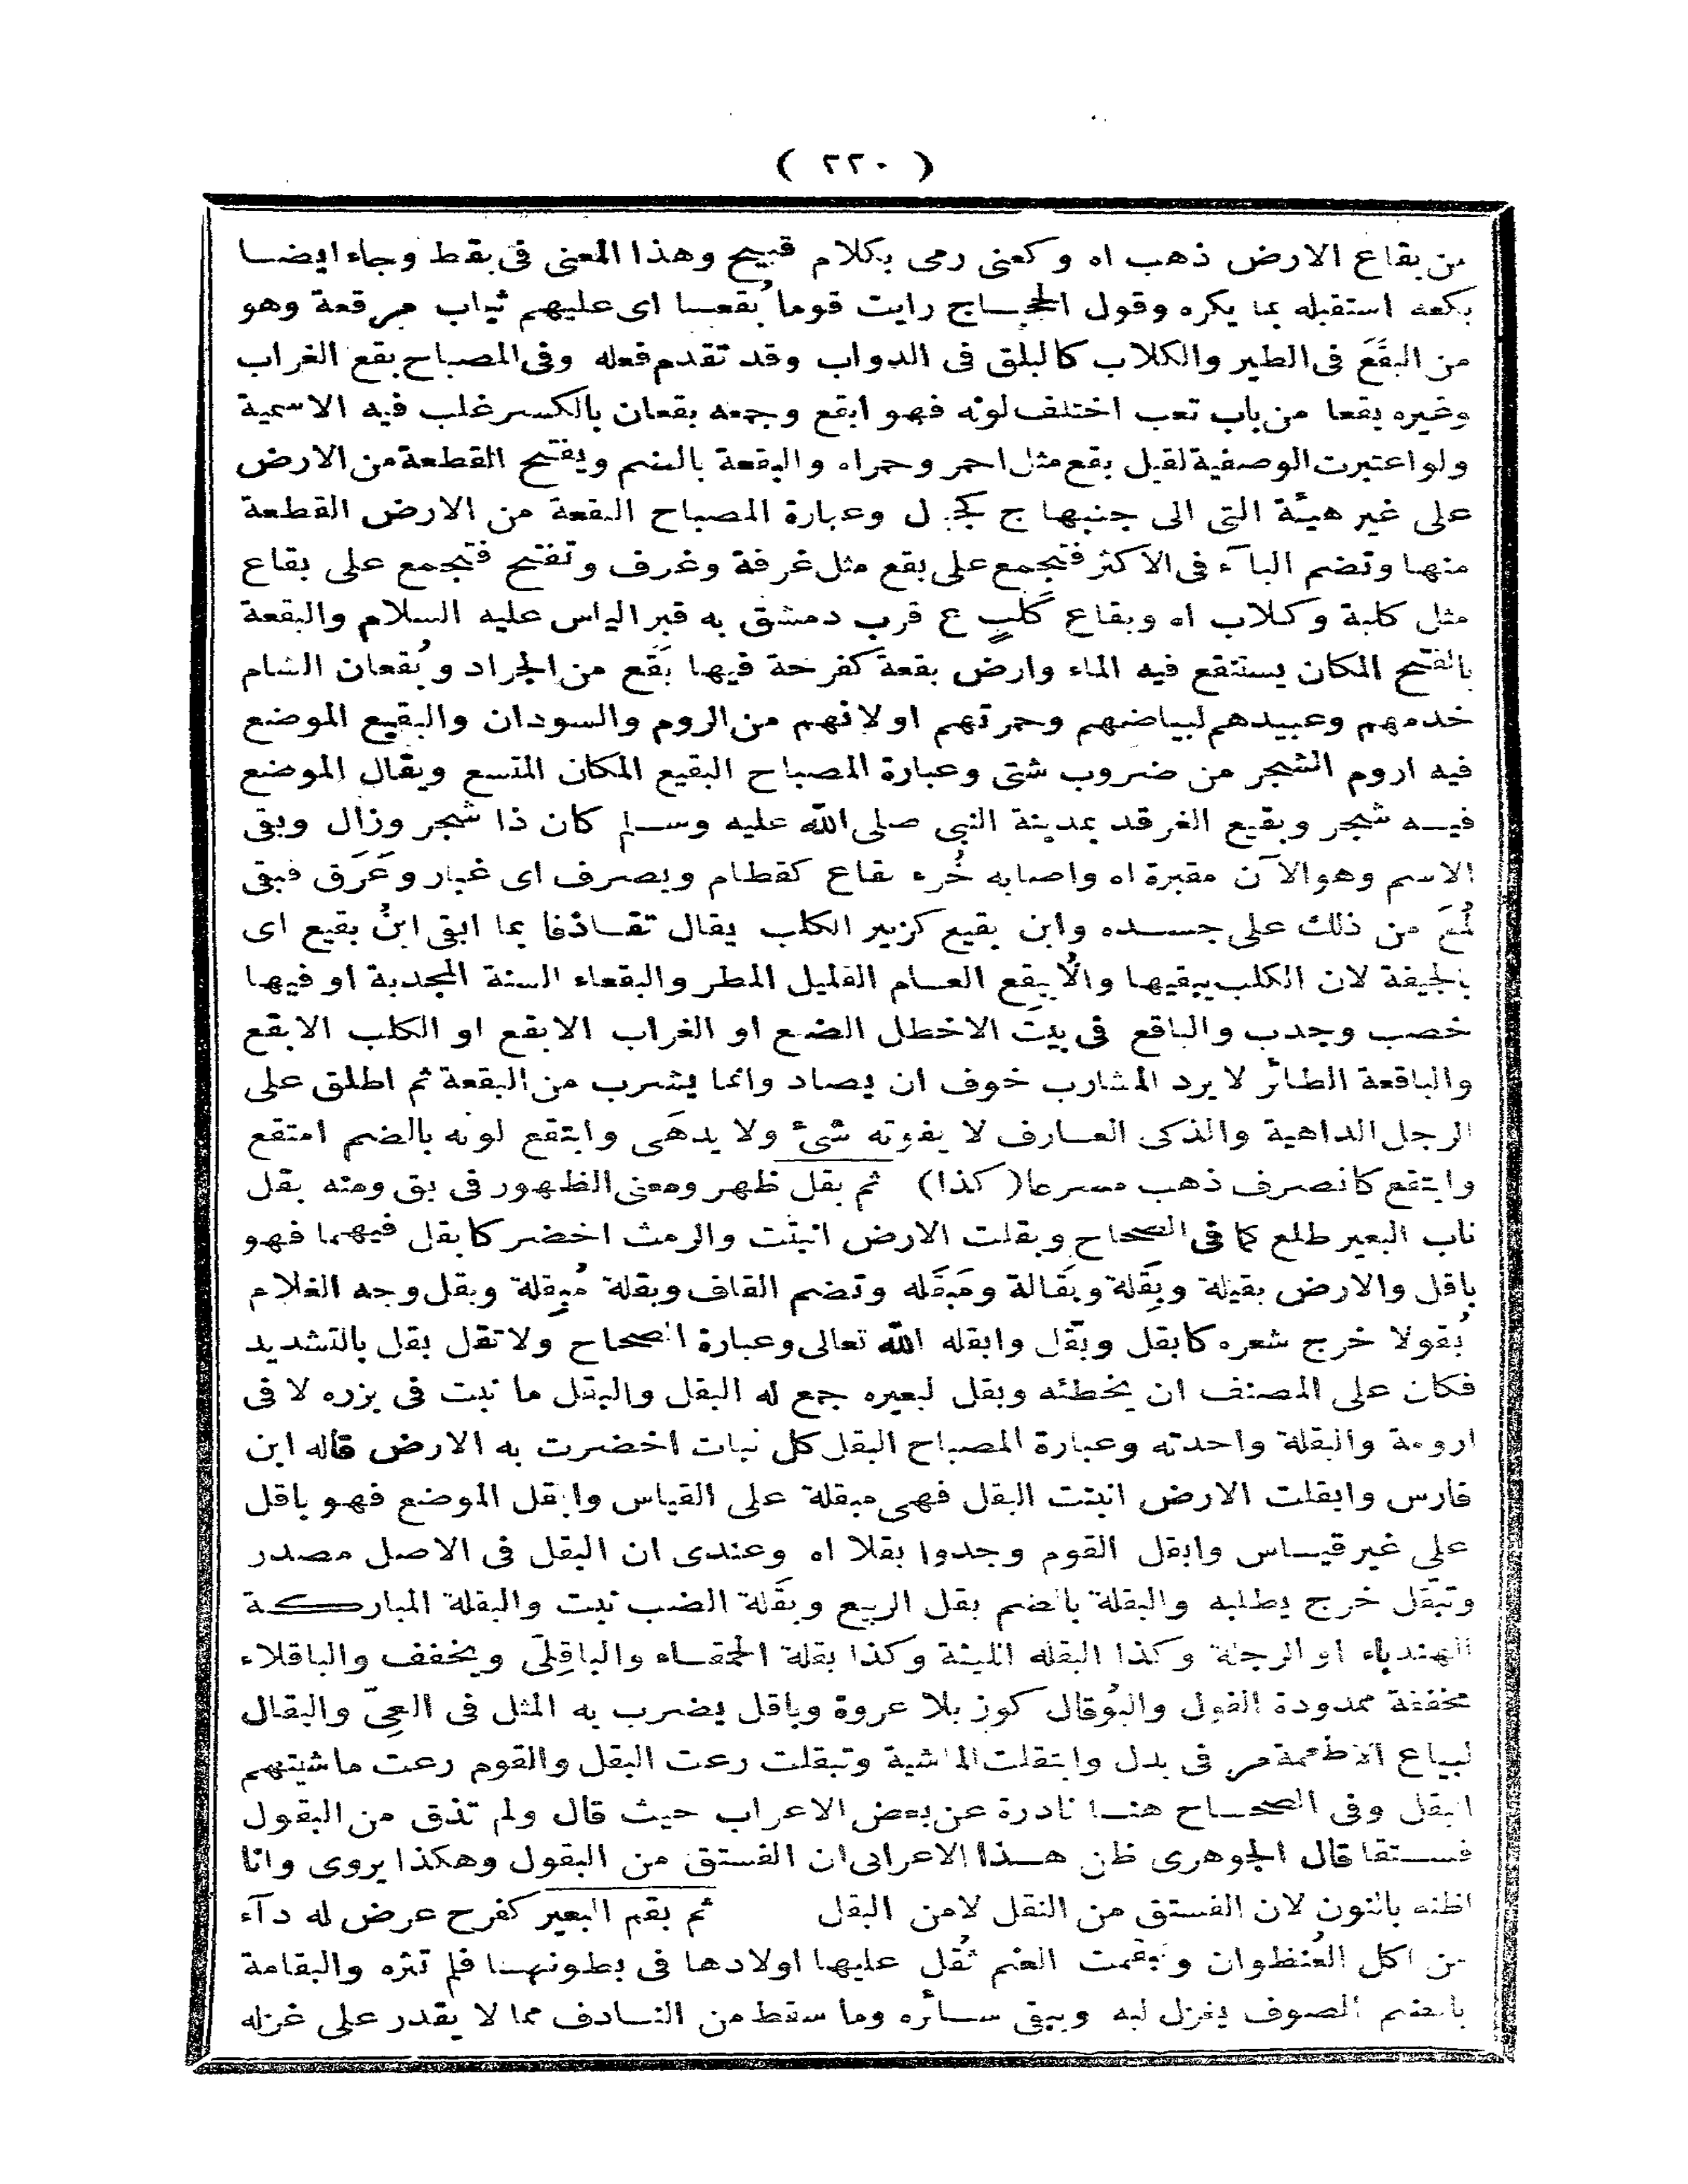 ( ٢٢٠ )
من بقاع الارض ذهب اه وكعنى رمى بكلام قبيح وهذا المعنى فى بقط وجاء ايضا
بكعه استقبله بما يكره وقول الحجاج رايت قوما بُقعا اى عليهم ثياب مرقعة وهو
من البقَع فى الطير والكلاب كالبلق فى الدواب وقد تقدم فعله وفى المصباح بقع الغراب
وغيره بقعا من باب تعب اختلف لونه فهو ابقع وجمعه بقعان بالكسر غلب فيه الاسمية
ولو اعتبرت الوصفية لقيل بقع مثل احمر وحمراء والبقعة بالضم ويفتح القطعة من الارض
على غير هيئة التى الى جنبها ج كجبال وعبارة المصباح البقعة من الارض القطعة
منها وتضم البآء فى الاكثر فتجمع على بقع مثل غرفة وغرف وتفتح فتجمع على بقاع
مثل كلبة وكلاب اه وبقاع كَلبٍ ع قرب دمشق به قبر الياس عليه السلام والبقعة
بالفتح المكان يستنقع فيه الماء وارض بقعة كفرحة فيها بَقَع من الجراد وبُقعان الشام
خدمهم وعبيدهم لبياضهم وحمرتهم او لانهم من الروم والسودان والبقيع الموضع
فيه اروم الشجر من ضروب شتى وعبارة المصباح البقيع المكان المتسع ويقال الموضع
فيه شجر وبقيع الغرقد بمدينة النبى صلى الله عليه وسلم كان ذا شجر وزال وبقى
الاسم وهو الآن مقبرة اه واصابه خُرء بقاع كقطام ويصرف اى غبار وعَرَق فبقى
لُمَع من ذلك على جسده وابن بقيع كزبير الكلب يقال تقاذفا بما ابقى ابنُ بقيع اى
بالجيفة لان الكلب يبقيها والاُبيقع العام القليل المطر والبقعاء السنة المجدبة او فيها
خصب وجدب والباقع فى بيت الاخطل الضبع او الغراب الابقع او الكلب الابقع
والباقعة الطائر لا يرد المشارب خوف ان يصاد وانما يشرب من البقعة ثم اطلق على
الرجل الداهية والذكى العارف لا يفوته شئ ولا يدهَى وابتقع لونه بالضم امتقع
وابتقع كانصرف ذهب مسرعا (كذا) ثم بقل ظهر ومعنى الظهور فى بق ومنه بقل
ناب البعير طلع كما فى الصحاح وبقلت الارض انبتت والرمث اخضر كابقل فيهما فهو
باقل والارض بقيلة وبَقِلة وبقالة ومَبقَله وتضم القاف وبقلة مُبقِلة وبقل وجه الغلام
بُقولا خرج شعره كابقل وبقّل وابقله الله تعالى وعبارة الصحاح ولا تقل بقل بالتشديد
فكان على المصنف ان يخطئه وبقل لبعيره جمع له البقل والبقل ما نبت فى بزره لا فى
ارومة والبقلة واحدته وعبارة المصباح البقل كل نبات اخضرت به الارض قاله ابن
فارس وابقلت الارض انبتت البقل فهى مبقلة على القياس وابقل الموضع فهو باقل
على غير قياس وابقل القوم وجدوا بقلا اه وعندى ان البقل فى الاصل مصدر
وتبقّل خرج يطلبه والبقلة بالضم بقل الربيع وبَقلة الضب نبت والبقلة المباركة
الهندباء او الرجلة وكذا البقله اللينة وكذا بقلة الحمقاء والباقِلّى ويخفف والباقلاء
مخففة ممدودة الفول والبُوقال كوز بلا عروة وباقل يضرب به المثل فى العِىّ والبقال
لبياع الاطعمة مر فى بدل وابتقلت الماشية وتبقلت رعت البقل والقوم رعت ماشيتهم
البقل وفى الصحاح هنا نادرة عن بعض الاعراب حيث قال ولم تذق من البقول
فستقا قال الجوهرى ظن هذا الاعرابى ان الفستق من البقول وهكذا يروى وانا
اظنه بالنون لان الفستق من النقل لا من البقل ثم بقم البعير كفرح عرض له دآء
من اكل العُنظوان وبُقمت الغنم ثقُل عليها اولادها فى بطونها فلم تثره والبقامة
بالضم الصوف يغزل لبه ويبقى سائره وما سقط من النادف مما لا يقدر على غزله